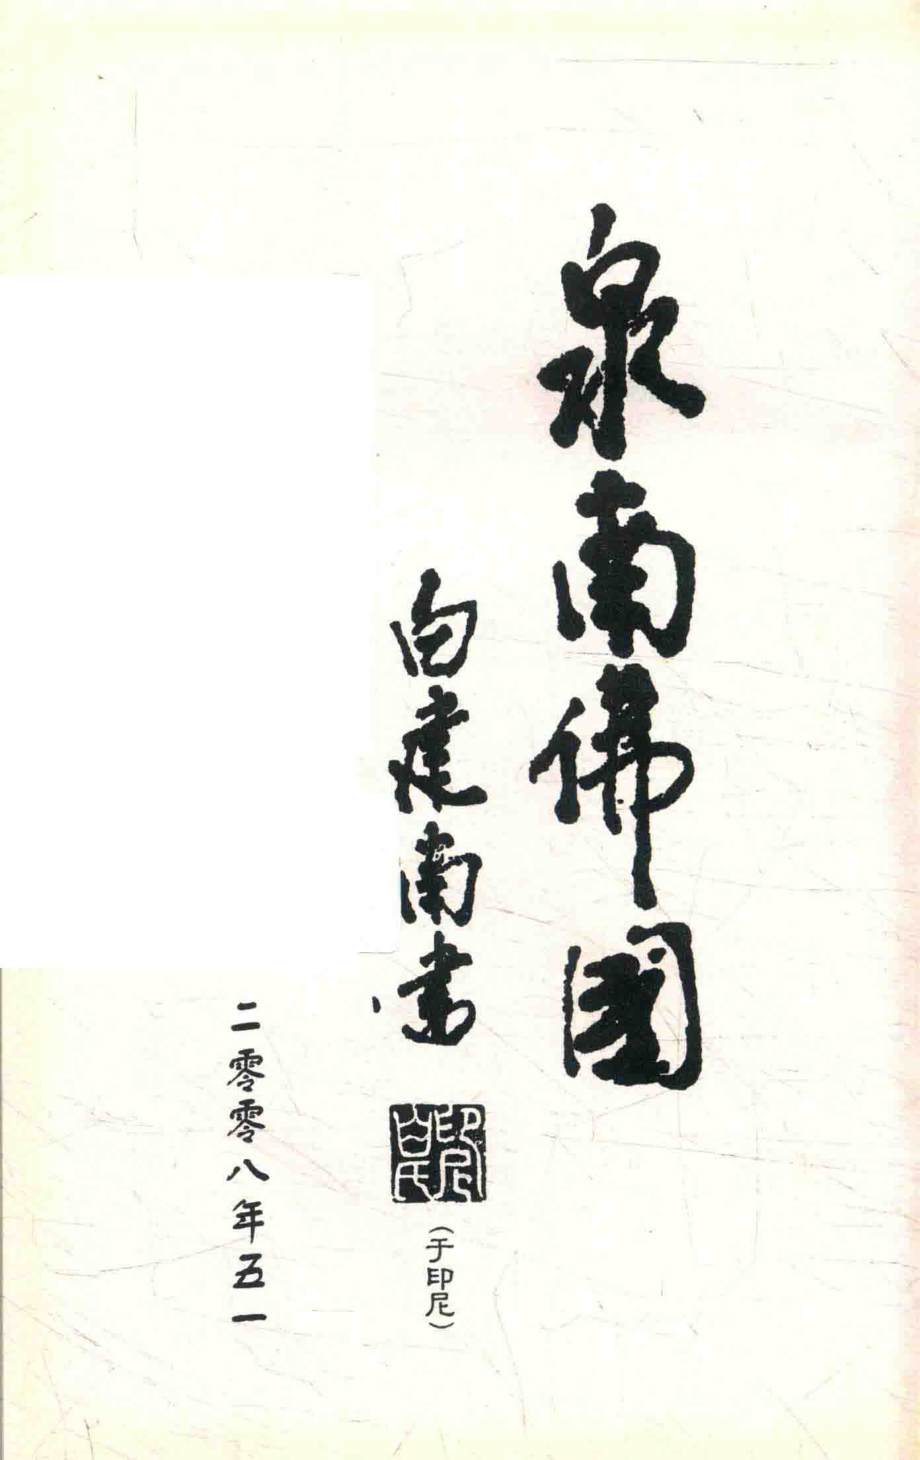 泉南佛國
白建南書
印尼
白氏
(于印尼)
二零零八年五一